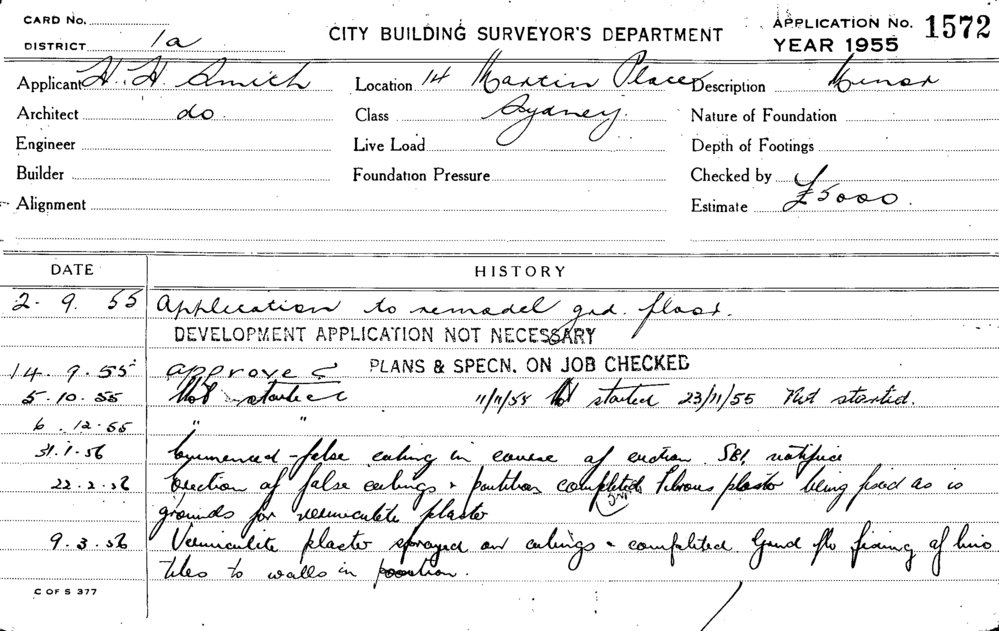 CARD No.
DISTRICT 1a
CITY BUILDING SURVEYOR'S DEPARTMENT
APPLICATION No. 1572
YEAR 1955
Applicant H. H. Smith Location 14 Martin Place Description Minor
Architect do Class Sydney. Nature of Foundation
Engineer Live Load Depth of Footings
Builder Foundation Pressure Checked by
Alignment Estimate £5000.
DATE HISTORY
2. 9. 55 Application to remodel grd. floor.
DEVELOPMENT APPLICATION NOT NECESSARY
14. 9. 55 approved PLANS & SPECN. ON JOB CHECKED
5. 10. 55 Not started 11/11/55 Not started 23/11/55 Not started.
6. 12. 55 " "
31. 1. 56 Commenced - false ceiling in course of erection. SBI notified
22. 2. 56 Erection of false ceilings & partitions completed Fibrous plaster being fixed as is
grounds for vermiculite plaster
9. 3. 56 Vermiculite plaster sprayed on ceilings & completed. Grnd flr fixing of lino
tiles to walls in position.
C OF S 377